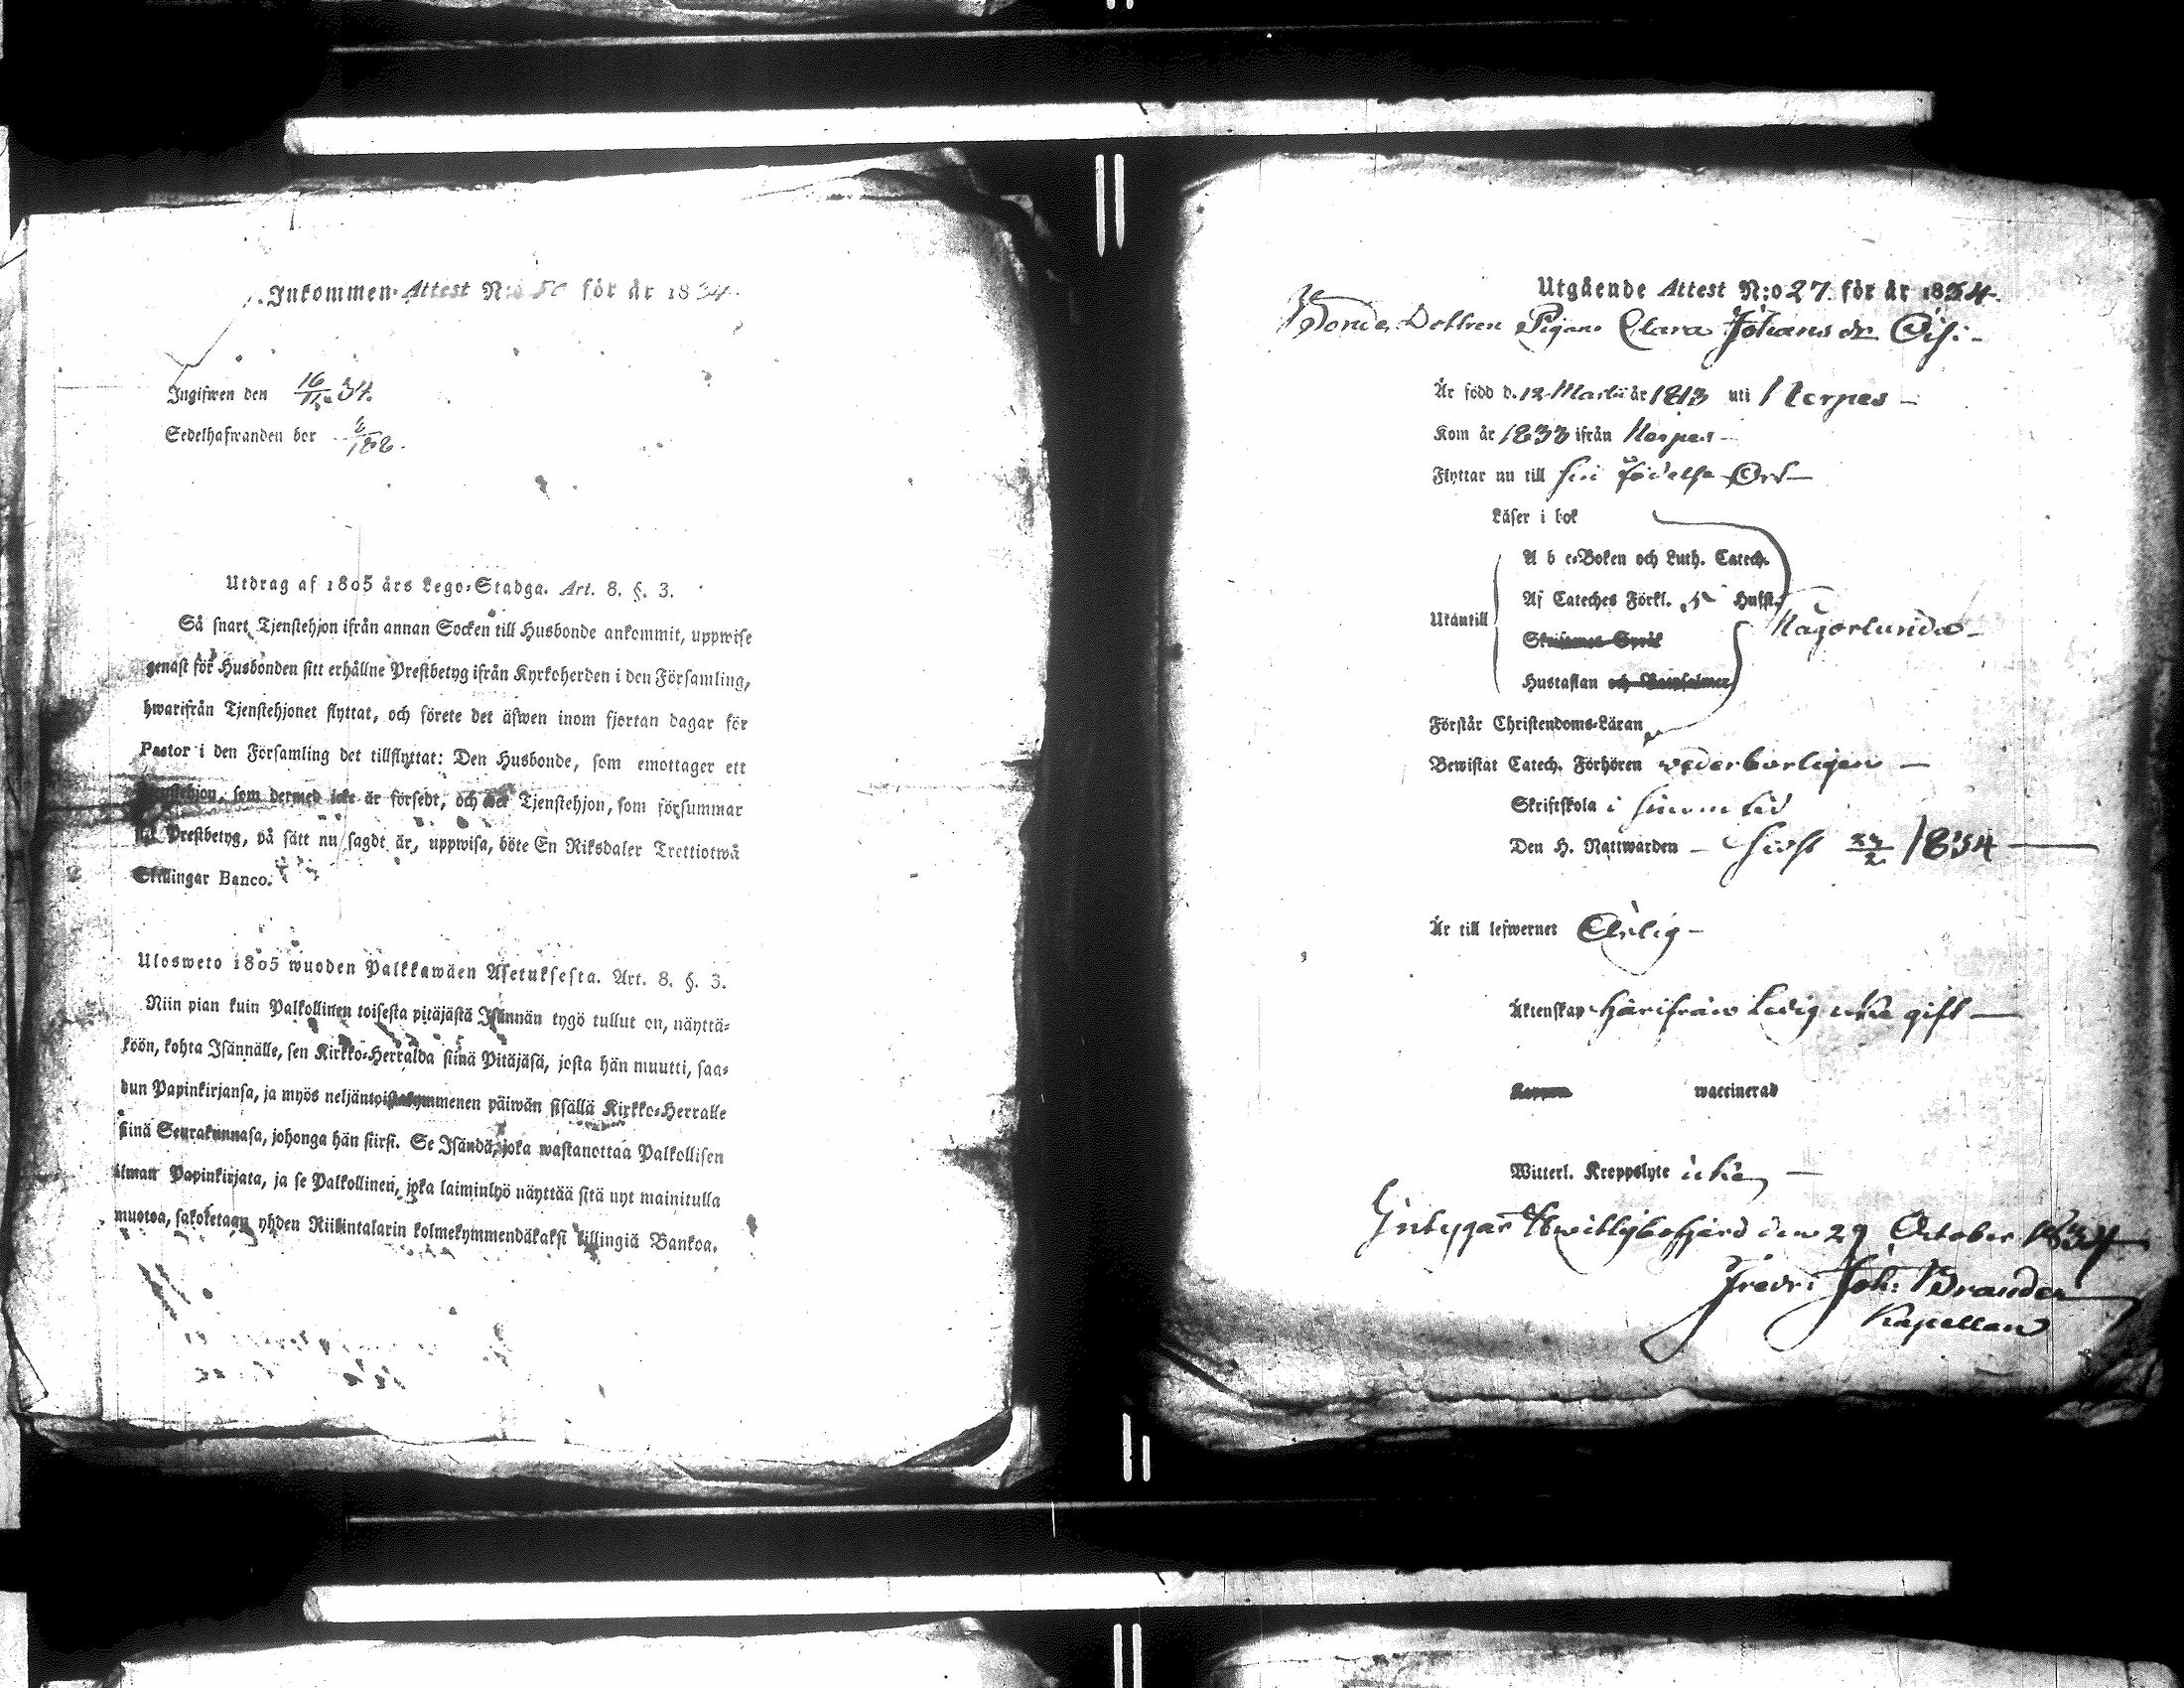 Inkommen Attest N:o 50 för år 1834.
Ingifwen den 16/11 34.
Sedelhafwanden bor 6/188.
Utdrag af 1805 års Lego-Stadga. Art. 8. §. 3.
Så snart Tjenstehjon ifrån annan Socken till Husbonde ankommit, uppwise
genast för Husbonden sitt erhållne Prestbetyg ifrån Kyrkoherden i den Församling,
hwarifrån Tjenstehjonet flyttat, och förete det äfwen inom fjortan dagar för
Pastor i den Församling det tillflyttat: Den Husbonde, som emottager ett
Tjenstehjon, som dermed icke är försedt, och det Tjenstehjon, som försummar
Prestbetyg, på sätt nu sagdt är, uppwisa, böte En Riksdaler Trettiotwå
Skillingar Banco.
Ulosweto 1805 wuoden Palkkawäen Asetuksesta. Art. 8. §. 3.
Niin pian kuin Palkollinen toisesta pitäjästä Isännän tygö tullut on, näyttä-
köön, kohta Isännälle, sen Kirkko-Herralda siinä Pitäjäsä, josta hän muutti, saa-
dun Papinkirjansa, ja myös neljäntoistakymmenen päiwän sisällä Kirkko-Herralle
siinä Seurakunnasa, johonga hän siirsi. Se Isändä, joka wastanottaa Palkollisen
ilman Papinkirjata, ja se Palkollinen, joka laiminlyö näyttää sitä nyt mainitulla
muotoa, sakoketaan yhden Riikintalarin kolmekymmendäkaksi killingiä Bankoa.
Utgående Attest N:o 27. för år 1834.
Bonde Dottren Pigan Clara Johans dr
Är född d. 12 Martii år 1813 uti Nerpes
Kom år 1833 ifrån Nerpes
Flyttar nu till sin födelse Ort
Läser i bok
A b c-Boken och Luth. Catech.
Af Cateches Förkl. 5 Hufst.
Utantill
Någorlunda
Skriftenes Språk
Hustaflan och Botpsalmer
Förstår Christendoms-Läran
Bewistat Catech. Förhören vederbörligen
Skriftskola i sinom tid
Den H. Nattwarden sidst 23/2 1834
Är till lefwernet Ärlig
Äktenskap härifrån ledig icke gift
Koppor waccinerad
Witterl. Kroppslyte icke
Intygar Qwitlybofjärd den 29 October 1834
Fredr: Joh: Brander
Kapellan